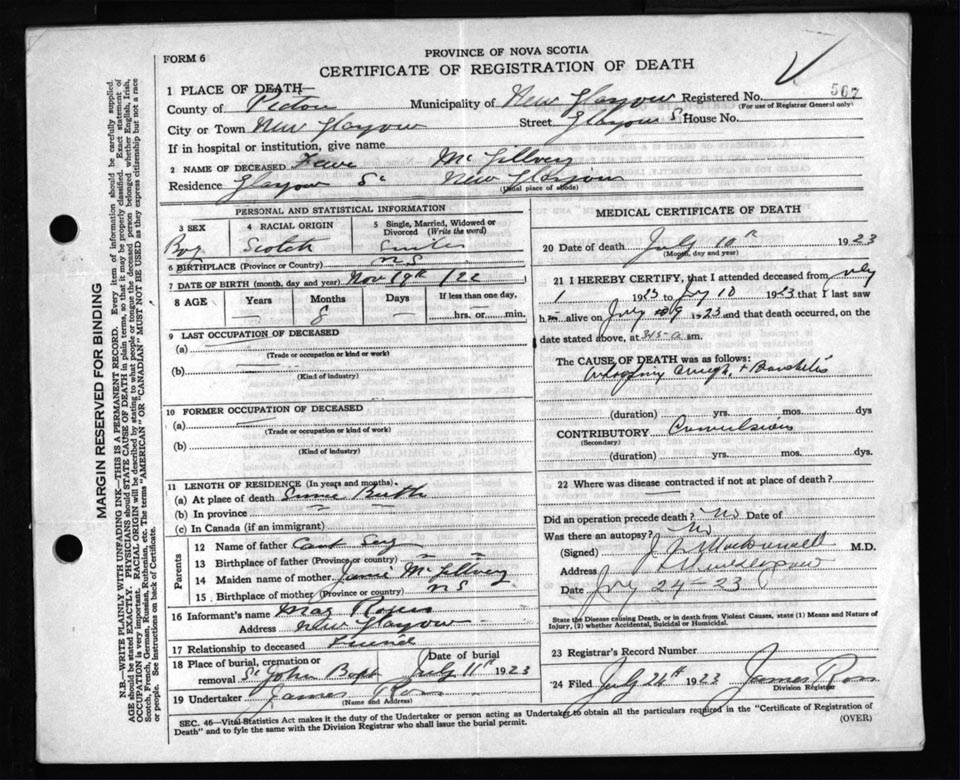 FORM 6
PROVINCE OF NOVA SCOTIA
CERTIFICATE OF REGISTRATION OF DEATH
1 PLACE OF DEATH—
County of Pictou Municipality of New Glasgow Registered No. 567
(For use of Registrar General only)
City or Town New Glasgow Street Glasgow St House No.
If in hospital or institution, give name
2 NAME OF DECEASED McGillvery
Residence Glasgow St New Glasgow
(Usual place of abode)
PERSONAL AND STATISTICAL INFORMATION
3 SEX 4 RACIAL ORIGIN 5 Single, Married, Widowed or Divorced (Write the word)
Boy Scotch Single
6 BIRTHPLACE (Province or Country) NS
7 DATE OF BIRTH (month, day and year) Nov 19th /22
8 AGE Years Months Days If less than one day,
— 8 — hrs. or min.
9 LAST OCCUPATION OF DECEASED
(a)
(Trade or occupation or kind or work)
(b)
(Kind of industry)
10 FORMER OCCUPATION OF DECEASED
(a)
(Trade or occupation or kind of work)
(b)
(Kind of industry)
11 LENGTH OF RESIDENCE (In years and months).
(a) At place of death Since Birth
(b) In province " "
(c) In Canada (if an immigrant)
Parents
12 Name of father Cant Say
13 Birthplace of father (Province or country) " "
14 Maiden name of mother McGillvery
15 Birthplace of mother (Province or country) NS
16 Informant's name
Address New Glasgow
17 Relationship to deceased Friend
18 Place of burial, cremation or removal St John Date of burial July 11th 1923
19 Undertaker James Ross
(Name and Address)
MEDICAL CERTIFICATE OF DEATH
20 Date of death July 10th 1923
(Month, day and year)
21 I HEREBY CERTIFY, that I attended deceased from July
1 1923 to July 10 1923 that I last saw
him alive on July 9 1923 and that death occurred, on
date stated above, at 3 15 a m.
The CAUSE OF DEATH was as follows:
Whooping Cough, + Bronchitis
(duration) yrs. mos. dys
CONTRIBUTORY Convulsions
(Secondary)
(duration) yrs. mos. dys.
22 Where was disease contracted if not at place of death?
Did an operation precede death? No Date of
Was there an autopsy? No
(Signed) M.D.
Address New Glasgow
Date July 24-23
State the Disease causing Death, or in death from Violent Causes, state (1) Means and Nature of Injury, (2) whether Accidental, Suicidal or Homicidal.
23 Registrar's Record Number
24 Filed July 26th 1923 James Ross
Division Registrar
SEC. 46—Vital Statistics Act makes it the duty of the Undertaker or person acting as Undertaker to obtain all the particulars required in the "Certificate of Registration of
Death" and to fyle the same with the Division Registrar who shall issue the burial permit.
(OVER)
MARGIN RESERVED FOR BINDING
N.B.—WRITE PLAINLY WITH UNFADING INK—THIS IS A PERMANENT RECORD. Every item of information should be carefully supplied.
AGE should be stated EXACTLY. PHYSICIANS should STATE CAUSE OF DEATH in plain terms, so that it may be properly classified. Exact statement of
OCCUPATION is very important. RACIAL ORIGIN will be described by stating to what people or tongue the deceased person belonged whether English, Irish,
Scotch, French, German, Russian, Ruthenian, etc. The terms "AMERICAN" OR "CANADIAN" MUST NOT BE USED as they express citizenship but not a race
or people. See instructions on back of Certificate.